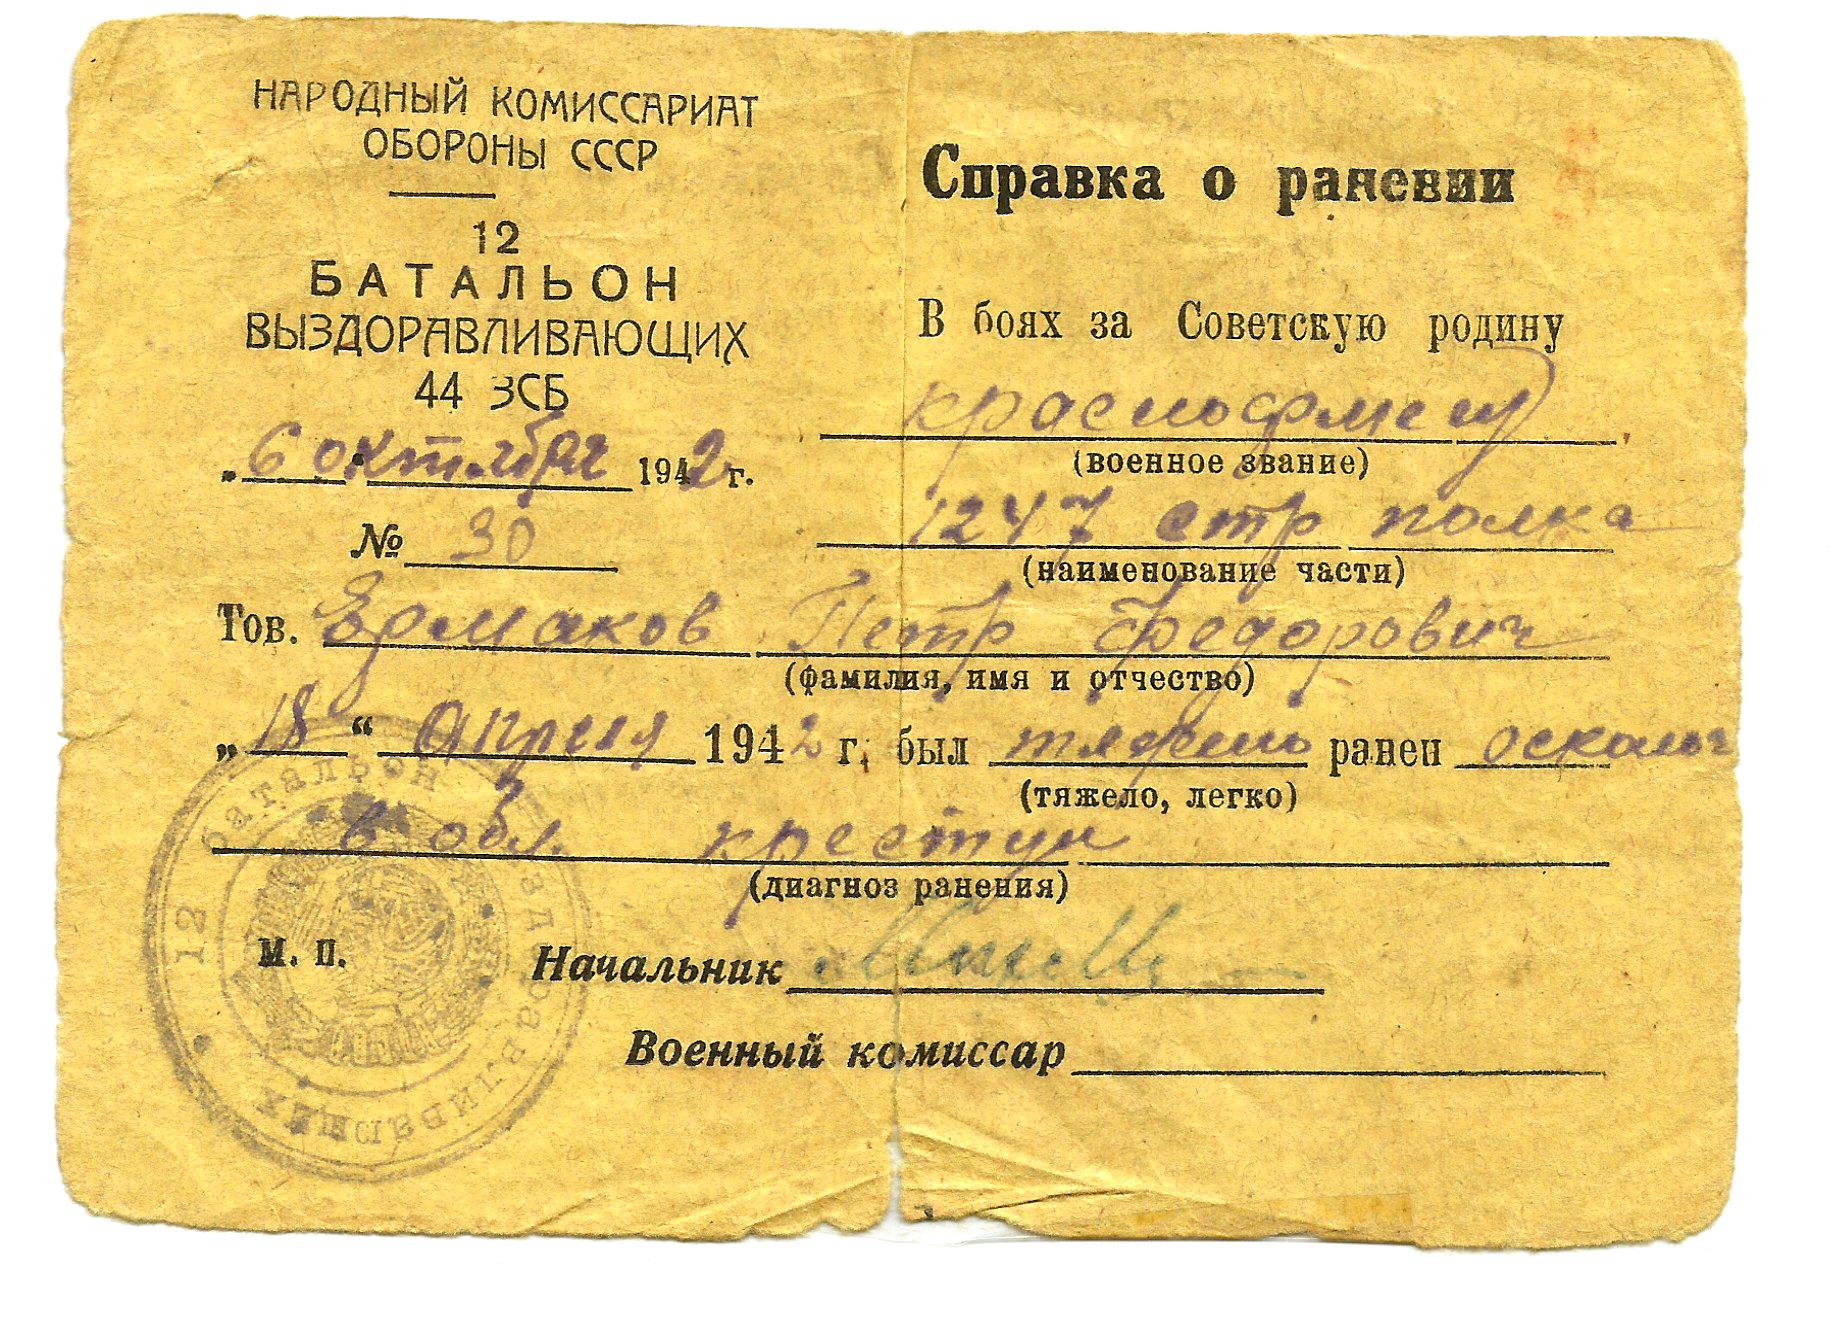 НАРОДНЫЙ КОМИССАРИАТ
ОБОРОНЫ СССР
12
БАТАЛЬОН
ВЫЗДОРАВЛИВАЮЩИХ
44 ЗСБ
„6 октября 1942 г.
№ 30
Справка о ранении
В боях за Советскую родину
красноармеец
(военное звание)
1247 стр полка
(наименование части)
Тов. Ермаков Петр Федорович
(фамилия, имя и отчество)
„18“ апреля 1942 г. был ранен
(тяжело, легко)
в обл.
(диагноз ранения)
М. П.
Начальник
Военный комиссар
12 батальон выздоравливающих